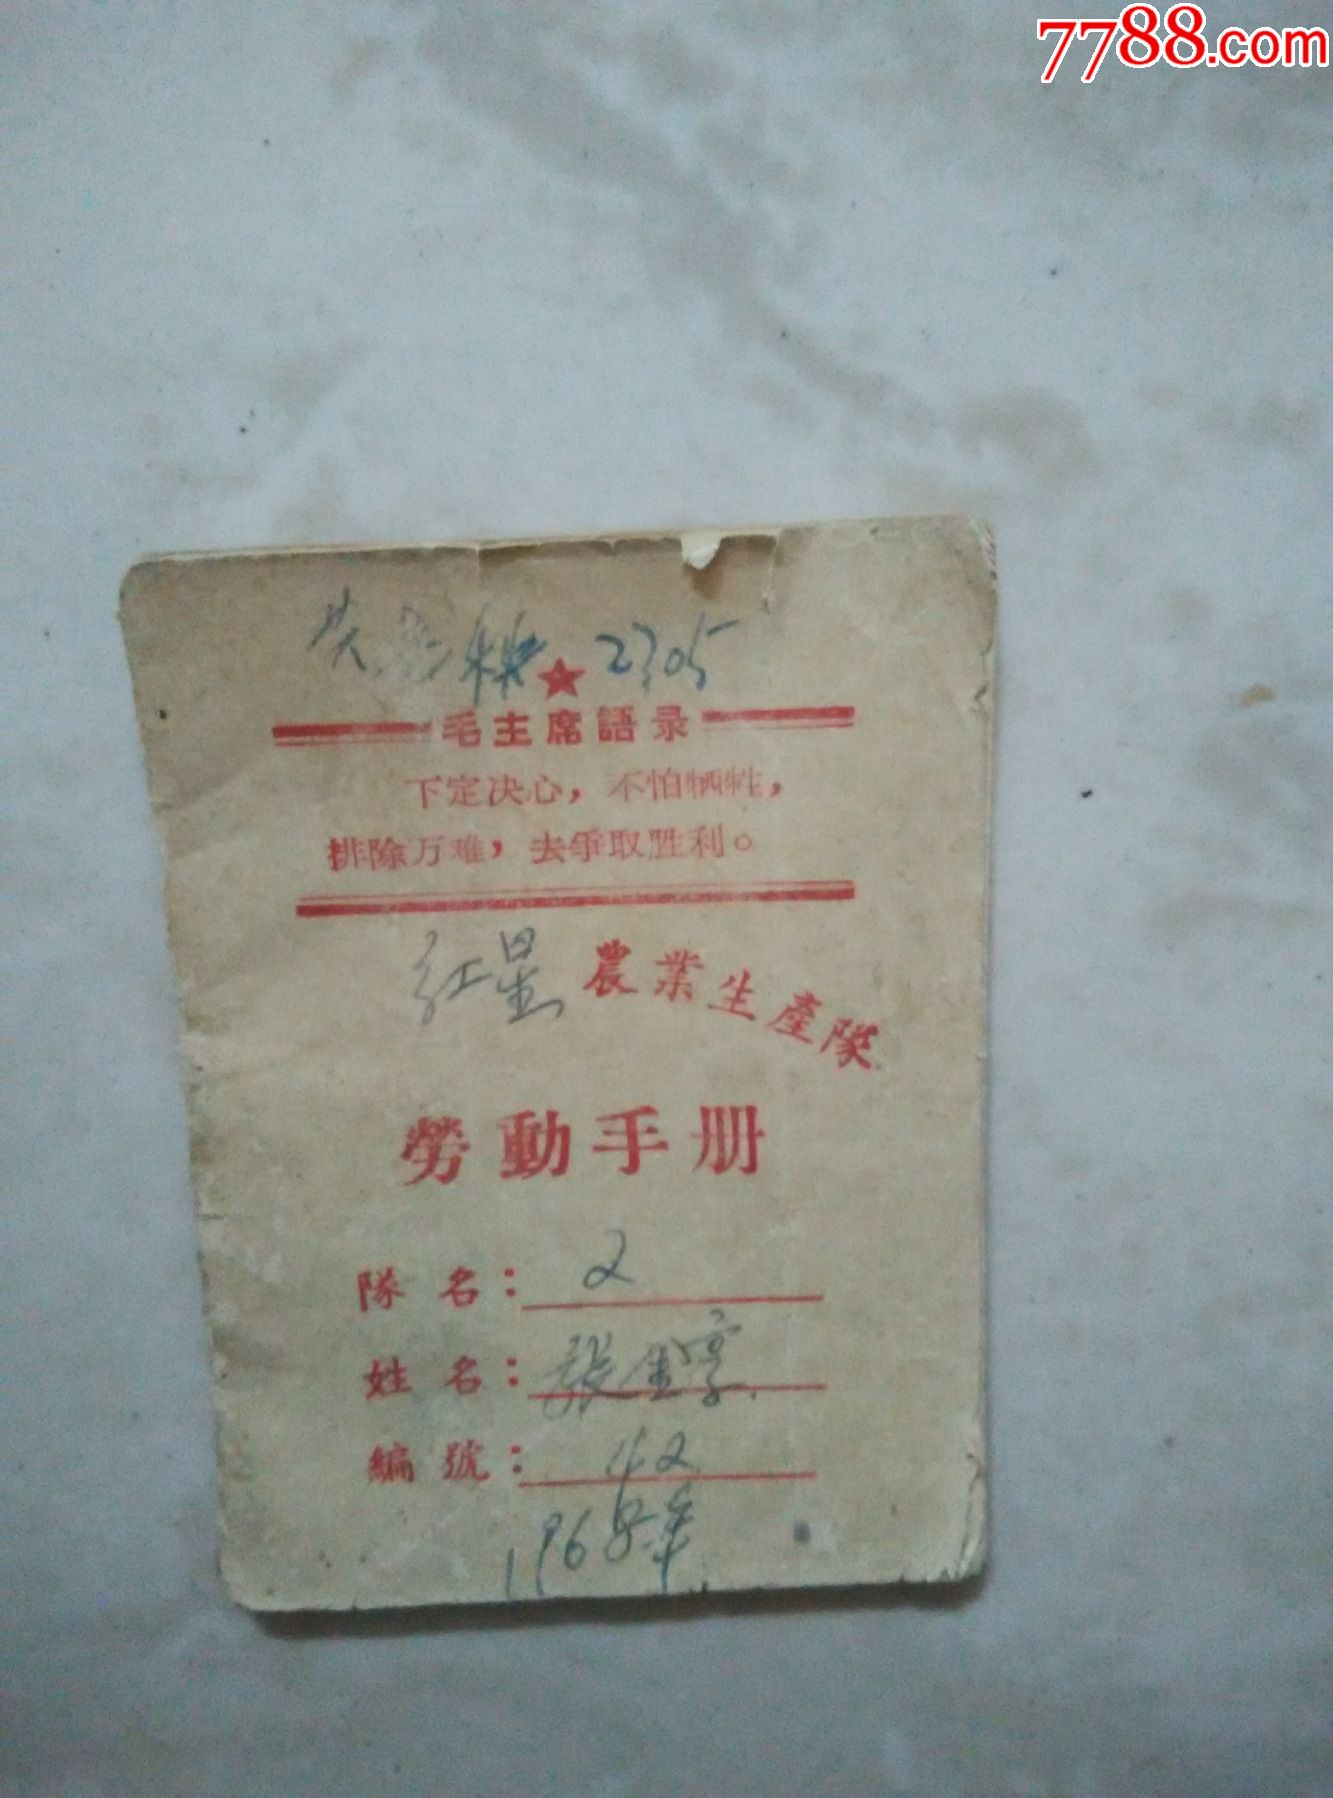 7788.com
共 2705
毛主席語录
下定决心，不怕牺牲，
排除万难，去爭取胜利。
红星 農業生產隊
勞動手册
隊名： 2
姓名： 張金
編號： 42
1968年